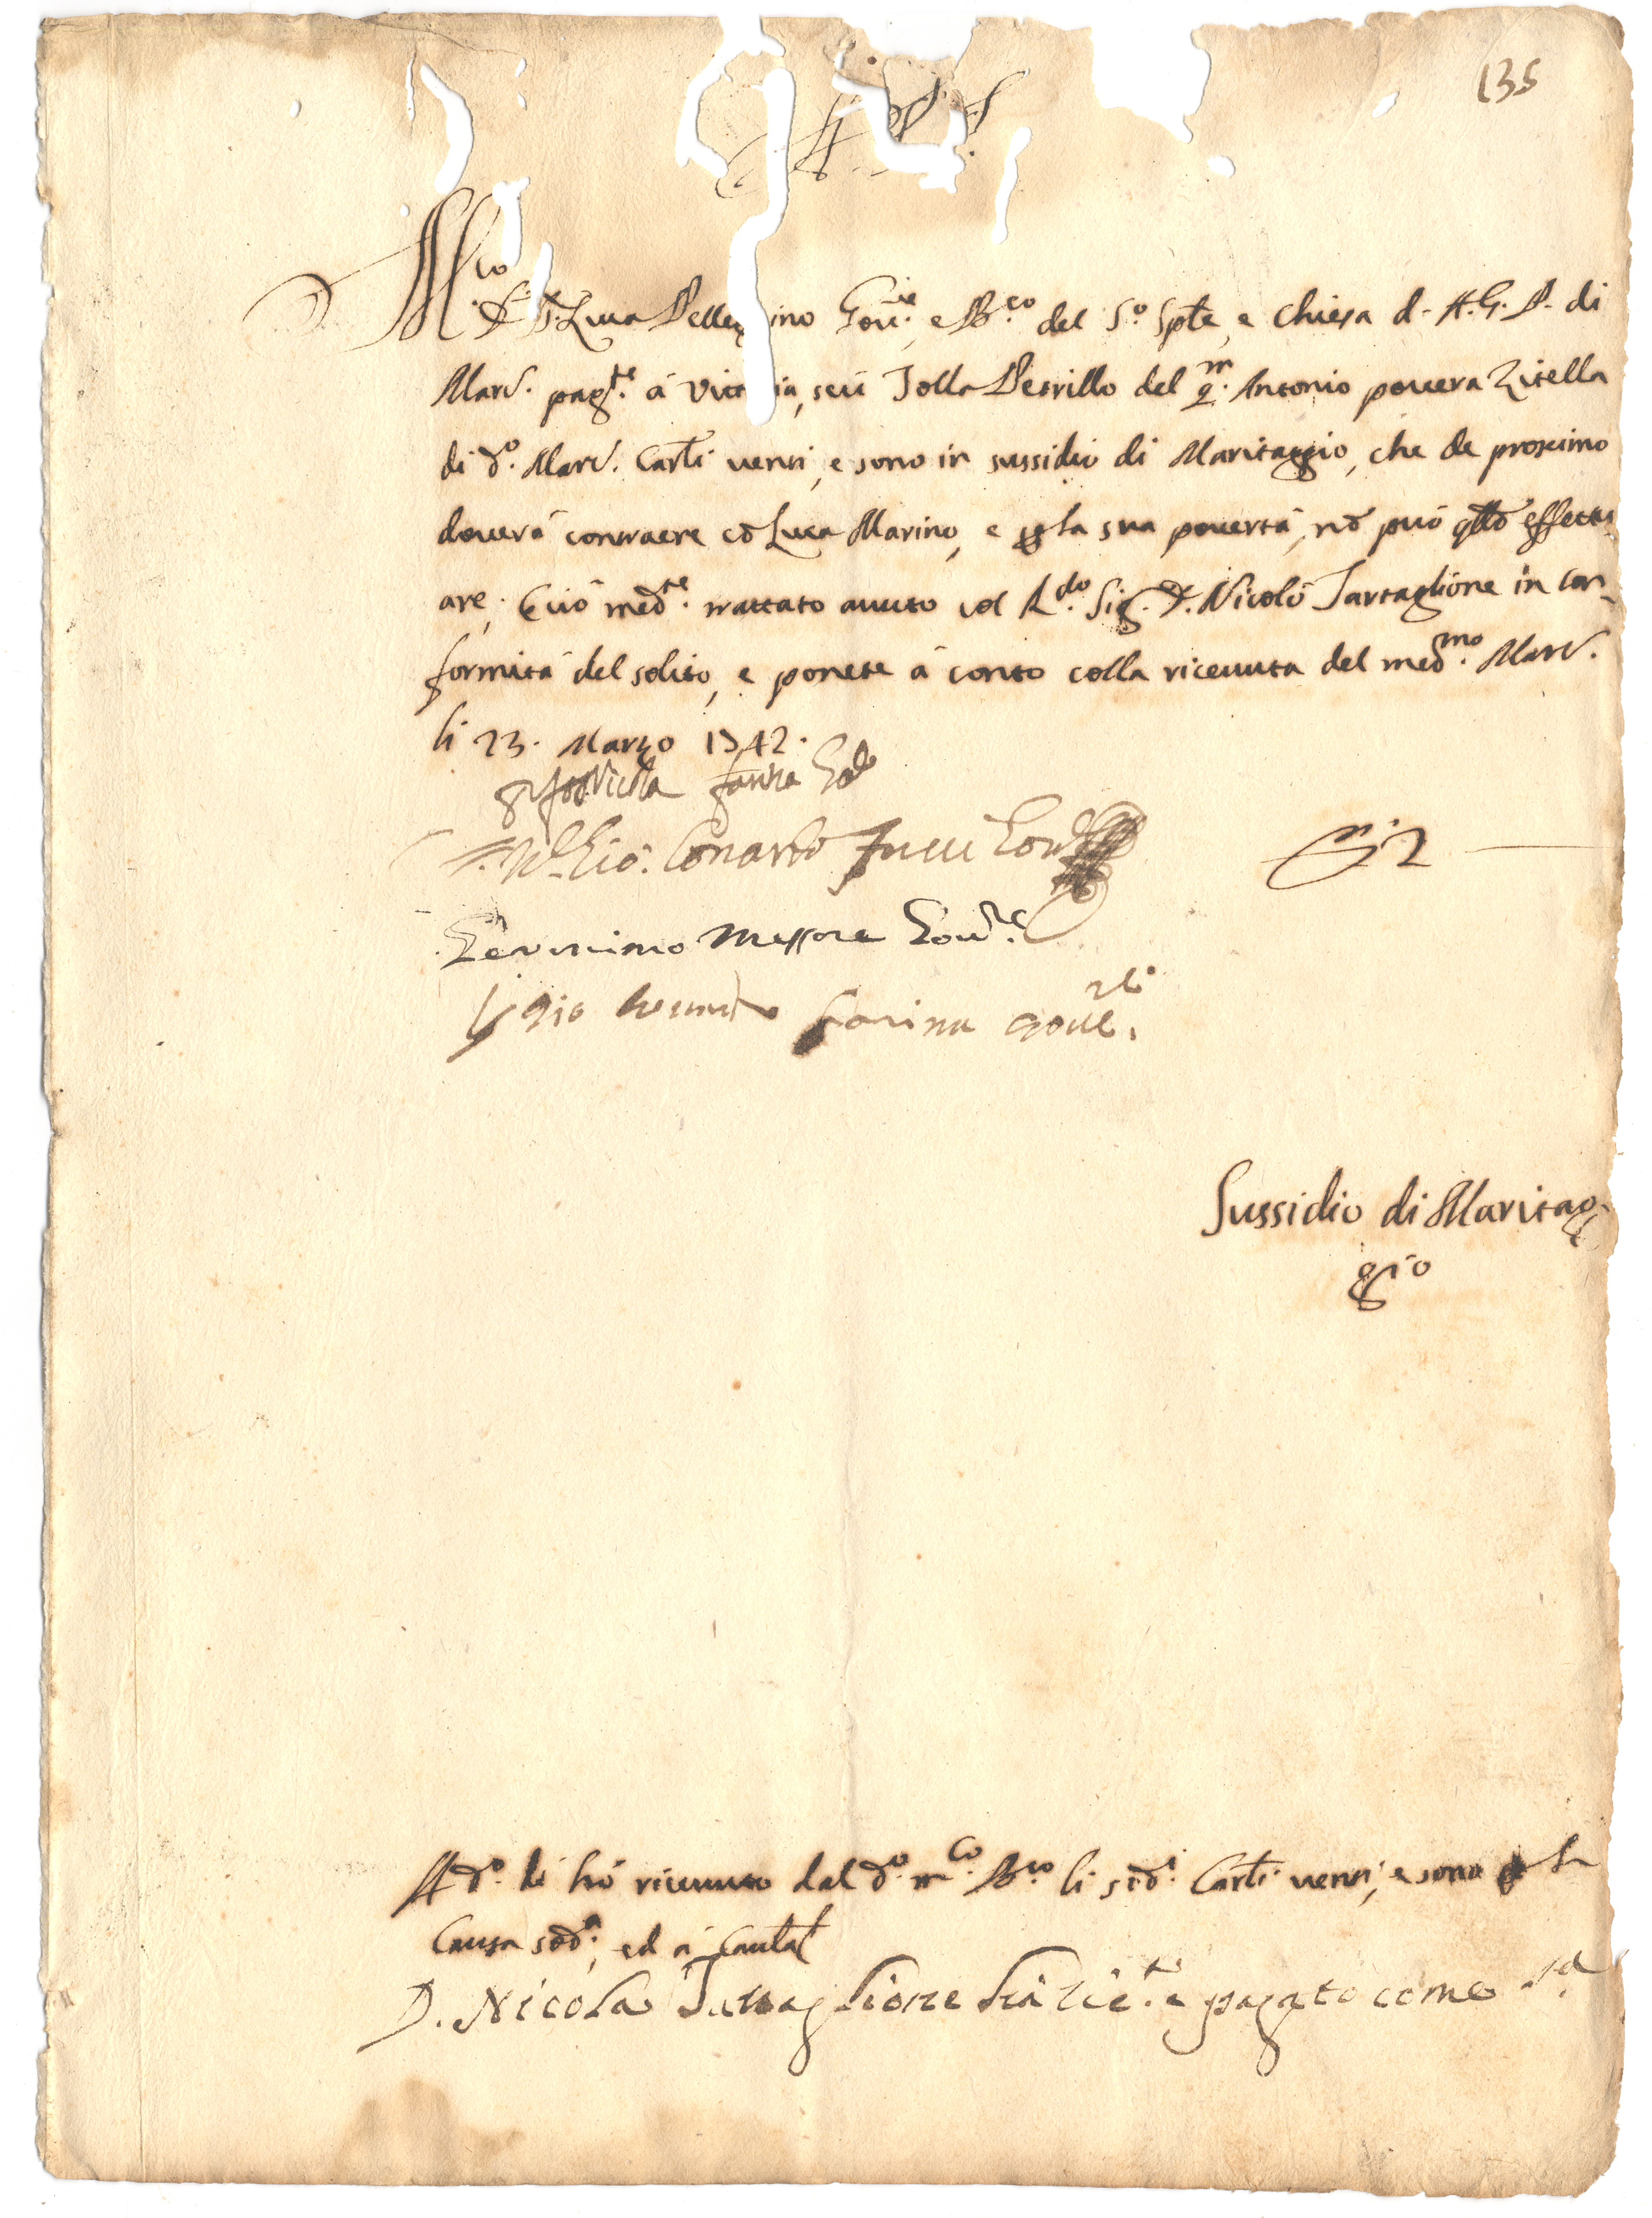 135
A. G. P.
M.co D. Luca Pelleg ino Gov.re, e B.co del S.o Spte, e Chiesa d. A. G. P. di
Marc. pag.te à Vitt ia, seù Tolla Petrillo del q.m Antonio povera Zitella
di d.o Marc. Carli venti, e sono in sussidio di Maritaggio, che de proximo
doverà contraere cō Luca Marino, e p la sua povertà, nō può qllō effettu
are; Ciò med.te trattato avuto col R.do Sig. D. Nicolò Tartaglione in con
formità del solito, e ponete à conto colla ricevuta del med.mo Marc.
li 23. Marzo 1742.
Gov.re
Gio: Conardo Gov.re
Geronimo Messore Gov.re
Io Gio Farina gove.re
D. 2
Sussidio di Maritag
gio
A d.o dì hò ricevuto dal d.o m.co B.co li sud.i Carli venti, e sono p la
Causa sud.a, ed à Cautal
D. Nicola Tartaglione hà ric.to e pagato come s.a